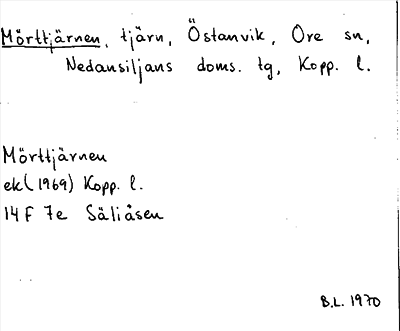 Mörttjärnen, tjärn, Östanvik, Ore sn,
Nedansiljans doms. tg, Kopp. l.
Mörttjärnen
ek (1969) Kopp. l.
14 F 7e Säliåsen
B.L. 1970